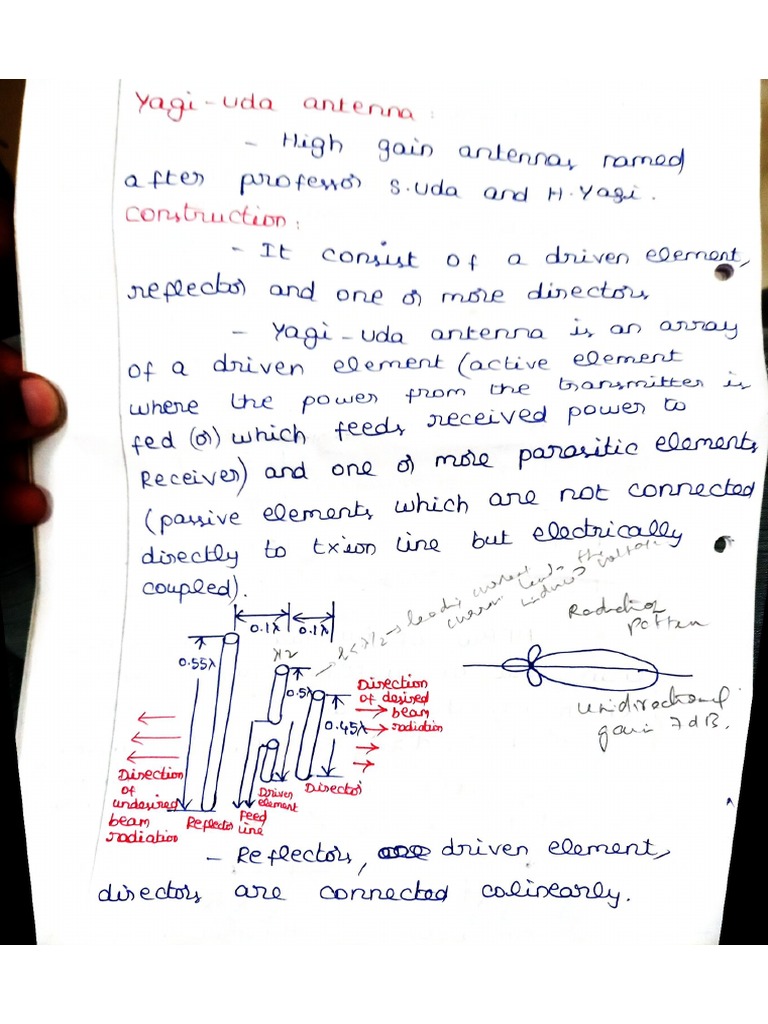 Yagi-uda antenna:
- High gain antennas, named
after professor S.Uda and H.Yagi.
Construction:
- It consist of a driven element,
reflector and one or more directors
- Yagi-uda antenna is an array
of a driven element (active element
where the power from the transmitter is
fed (or) which feeds received power to
Receiver) and one or more parasitic elements
(passive elements which are not connected
directly to tx'sion line but electrically
coupled).
l<λ/2 → leading current
current leads the
induced voltage
0.1λ 0.1λ
λ/2
0.55λ
0.5λ
0.45λ
Radiation
pattern
Direction
of desired
beam
radiation
unidirectional
gain 7dB.
Direction
of
undesired
beam
radiation
Reflector
Feed
line
Driven
element
Director
- Reflectors, driven element,
directors are connected colinearly.